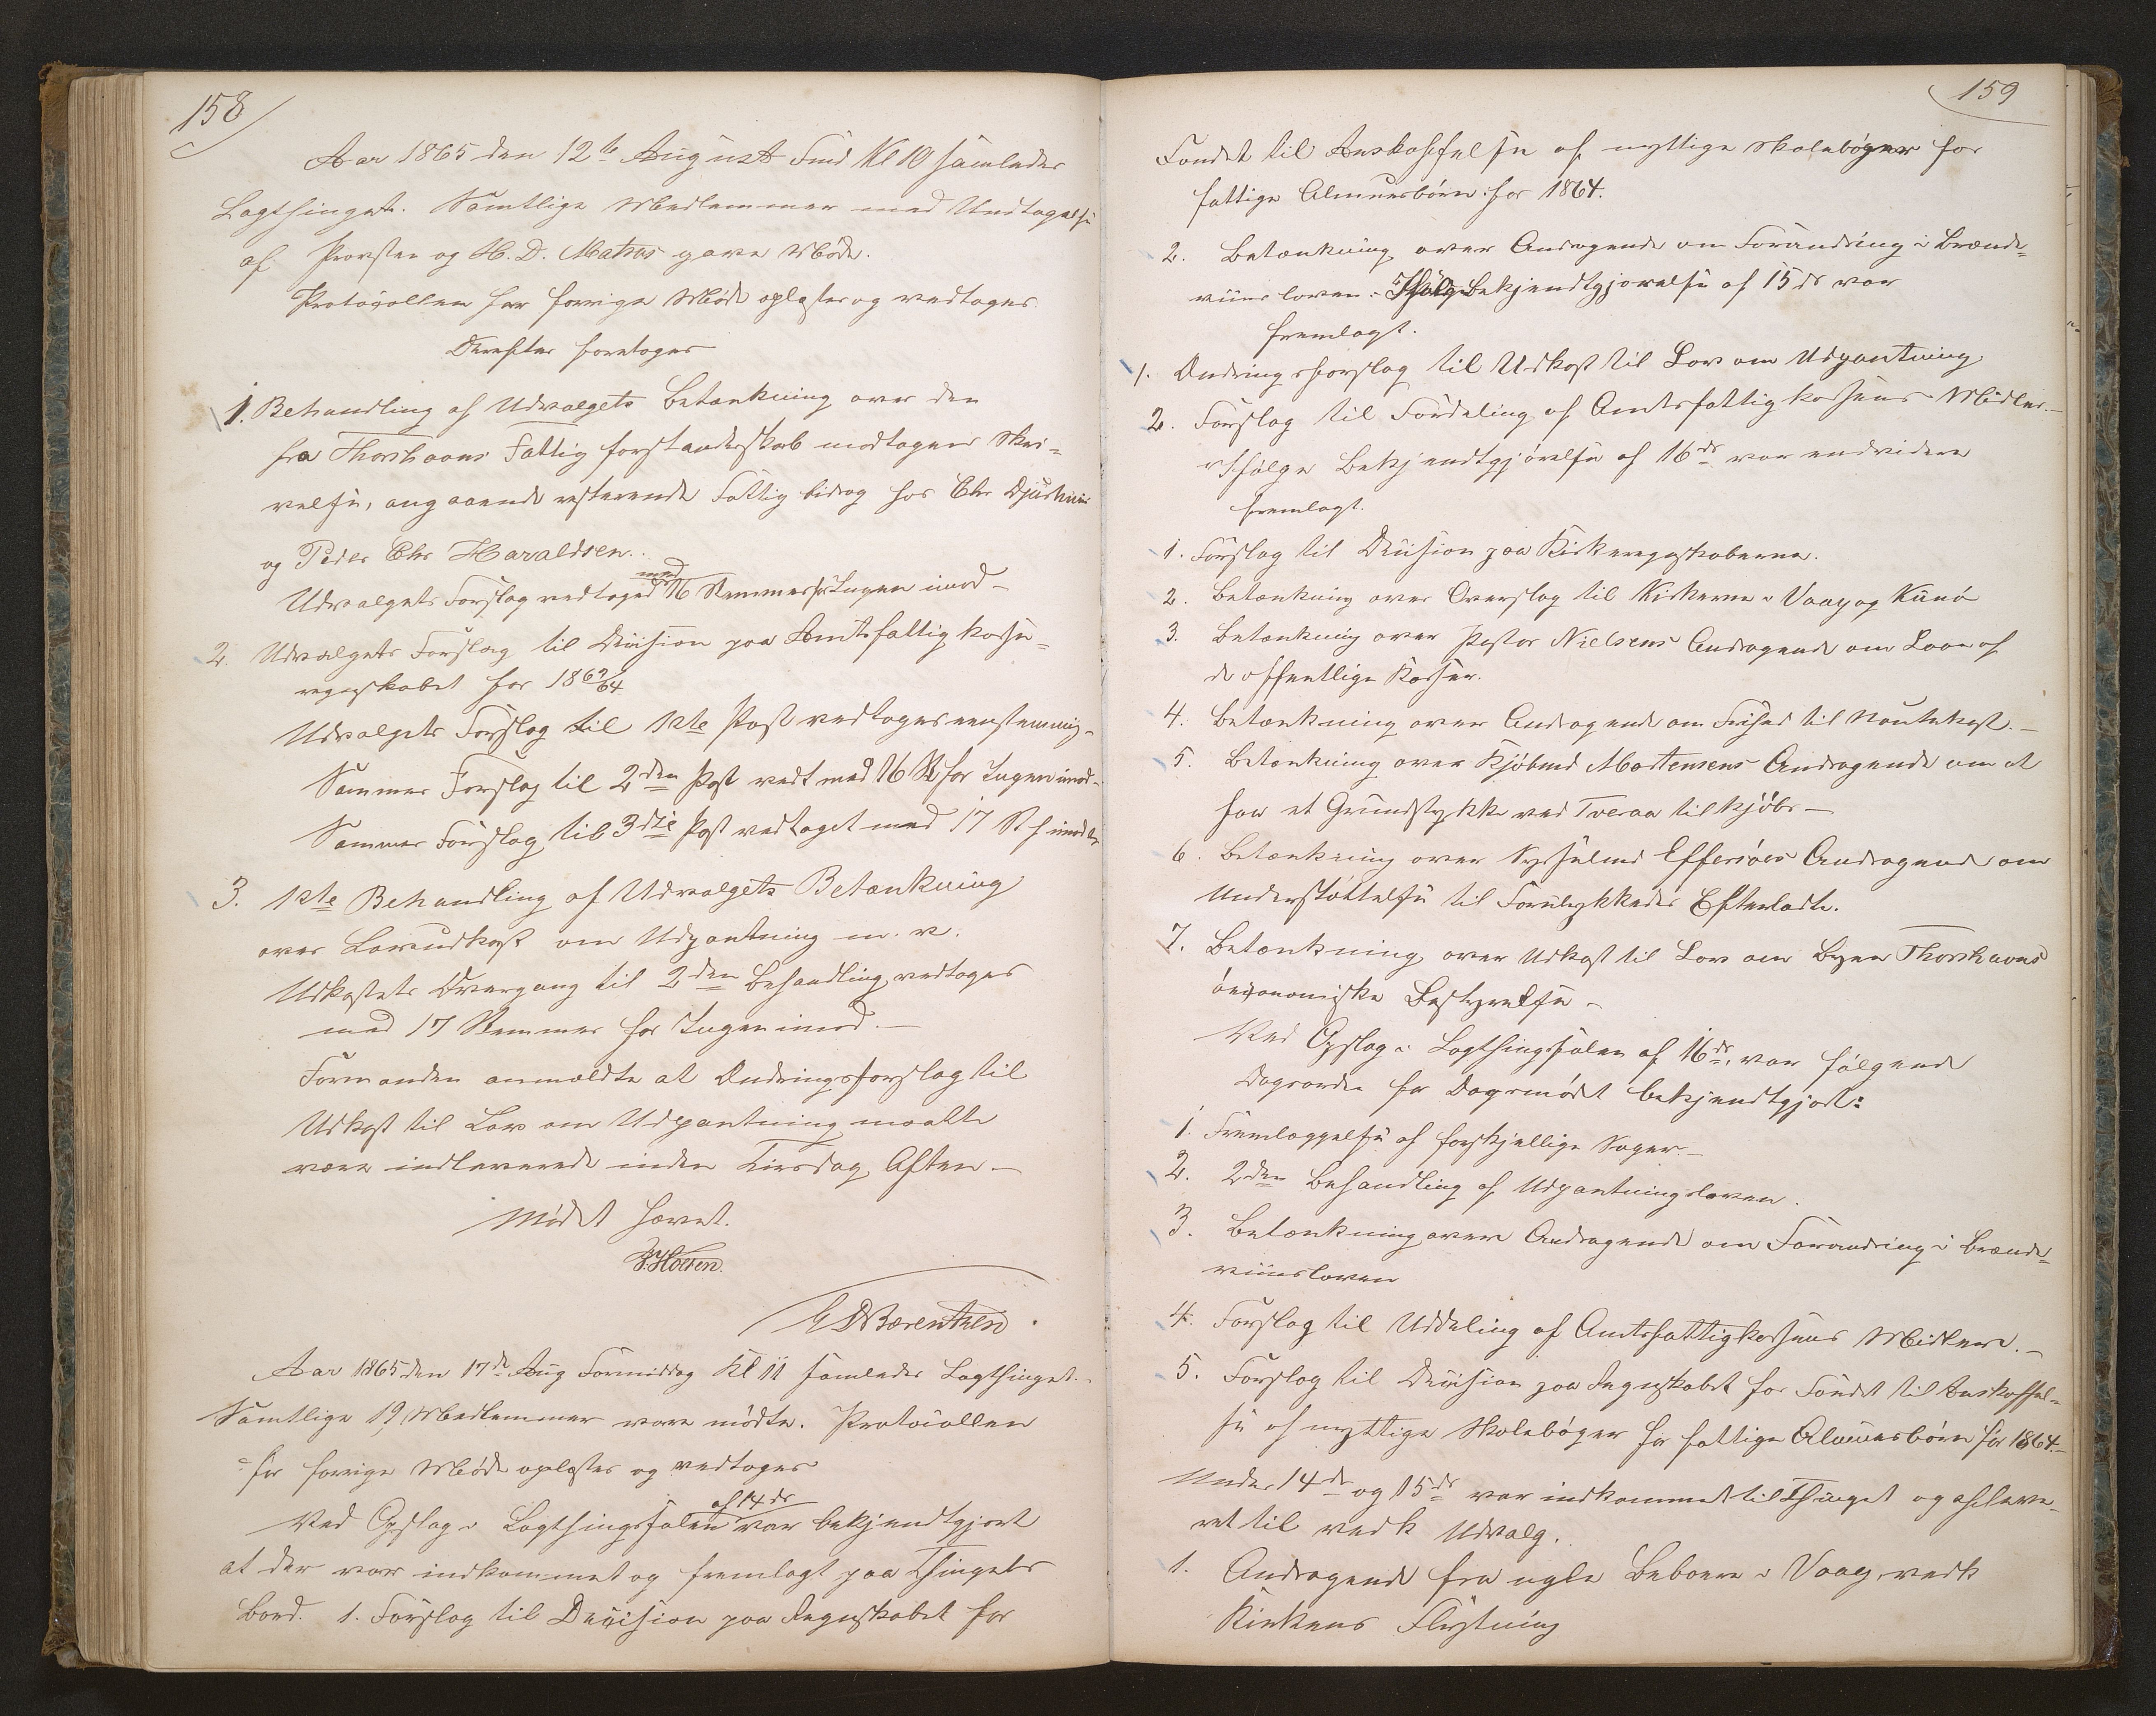 158
Aar 1865 den 12te August Fmd Kl 10 samledes
Lagthinget. Samtlige Medlemmer med Undtagelse
af Provsten og H. D. Matras gave Møde.
Protocollen for forrige Møde oplæstes og vedtoges
Derefter foretoges
1. Behandling af Udvalgets Betænkning over den
fra Thorshavns Fattigforstanderskab modtagene Skri=
velse, angaaende resterende Fattigbidrag hos Chr Djurhuus
og Peder Chr Haraldsen.
Udvalgets Forslag vedtoges med 16 Stemmer for Ingen imod –
2. Udvalgets Forslag til Decision paa Amtsfattigkasse=
regnskabet for 1863/64
Udvalgets Forslag til 1ste Post vedtoges eenstemmig –
Sammes Forslag til 2den Post vedt med 16 St for Ingen imod –
Sammes Forslag til 3die Post vedtaget med 17 St f imod
3. 1ste Behandling af Udvalgets Betænkning
over Lovudkast om Udpantning m. v.
Udkastets Overgang til 2den Behandling vedtoges
med 17 Stemmer for Ingen imod. –
Formanden anmeldte at Ændringsforslag til
Udkast til Lov om Udpantning maatte
være indleverede inden Tirsdag Aften –
Mødet hævet.
HDBærentzen
Aar 1865 den 17de Aug Formiddag Kl 11 samledes Lagthinget.
Samtlige 19 Medlemmer vare mødte. Protocollen
for forrige Møde oplæstes og vedtoges
Ved Opslag i Lagthingssalen af 14ds var bekjendtgjort
at der var indkommet og fremlagt paa Thingets
Bord. 1. Forslag til Decision paa Regnskabet for
159
Fondet til Anskaffelse af nyttige Skolebøger for
fattige Almuesbørn for 1864.
2. Betænkning over Andragende om Forandring i Brænde=
viinsloven. Ifølge Bekjendtgjørelse af 15 ds var
fremlagt.
1. Ændringsforslag til Udkast til Lov om Udpantning
2. Forslag til Fordeling af Amtsfattigkassens Midler. –
Ifølge Bekjendtgjørelse af 16ds var endvidere
fremlagt.
1. Forslag til Decision paa Kirkeregnskaberne.
2. Betænkning over Overslag til Kirkerne i Vaag og Kunø
3. Betænkning over Pastor Nielsens Andragende om Laan af
de offentlige Kasser.
4. Betænkning over Andragende om Frihed til Noutekast. –
5. Betænkning over Kjøbmd Mortensens Andragende om at
faa et Grundstykke ved Tveraa tilkjøbs –
6. Betænkning over Sysselmd Effersøes Andragende om
Understøttelse til Forulykkedes Efterladte.
7. Betænkning over Udkast til Lov om Byen Thorshavns
øconomiske Bestyrelse –
Ved Opslag i Lagthingssalen af 16ds. var følgende
Dagsorden for Dagsmødet bekjendtgjort:
1. Fremlæggelse af forskjellige Sager –
2. 2den Behandling af Udpantningsloven.
3. Betænkning over Andragende om Forandring i Brænde=
viinsloven
4. Forslag til Uddeling af Amtsfattigkassens Midler. –
5. Forslag til Decision paa Regnskabet for Fondet til Anskaffel=
se af nyttige Skolebøger for fattige Almuesbørn for 1864. –
Under 14de og 15ds var indkommet til Thinget og afleve=
ret til vedk Udvalg.
1. Andragende fra nogle Beboere i Vaag, vedk
Kirkens Flytning